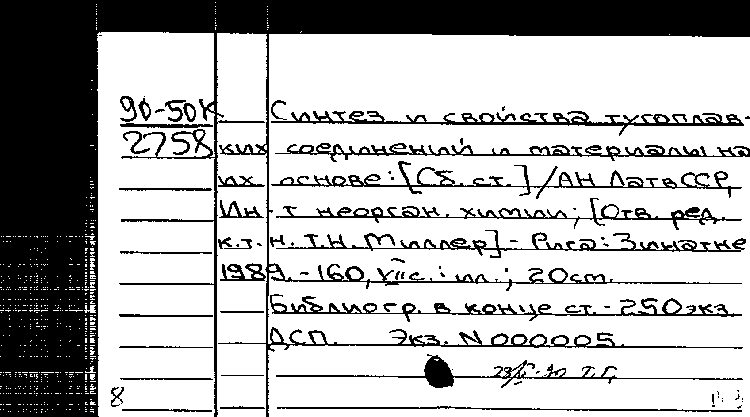 90-50К Синтез и свойства тугоплав-
2758 ких соединений и материалы на
их основе: [Сб. ст.] / АН ЛатвССР,
Ин-т неорган. химии; [Отв. ред.
к.т.н. Т.Н. Миллер] - Рига: Зинатне
1989. - 160, VII с.: ил.; 20 cm.
Библиогр. в конце ст. - 250 экз.
ДСП. Экз. N 000005.
8